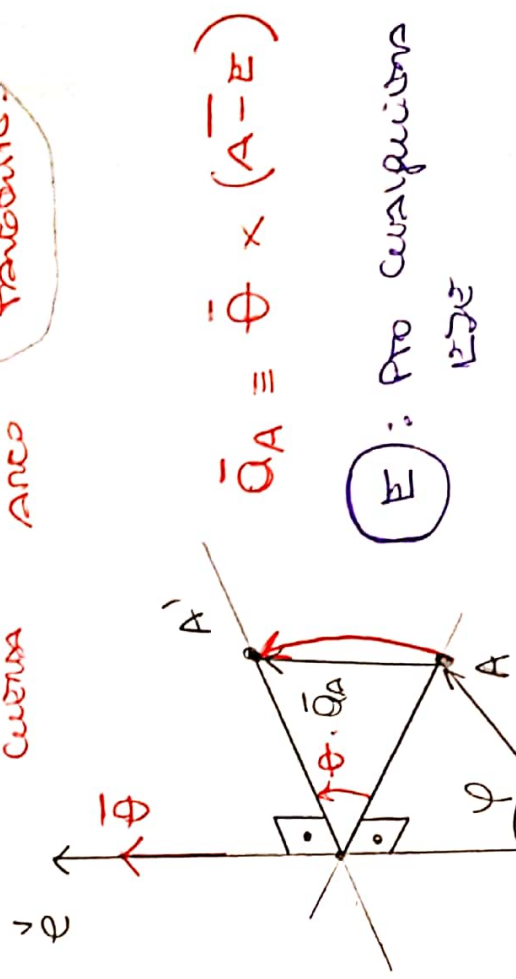 CUERDA ARCO
Q̄A ≡ Φ̄ × (A − E)
E : PTO CUALQUIERA
EJE
ê
Φ̄
Φ
Q̄A
A'
A